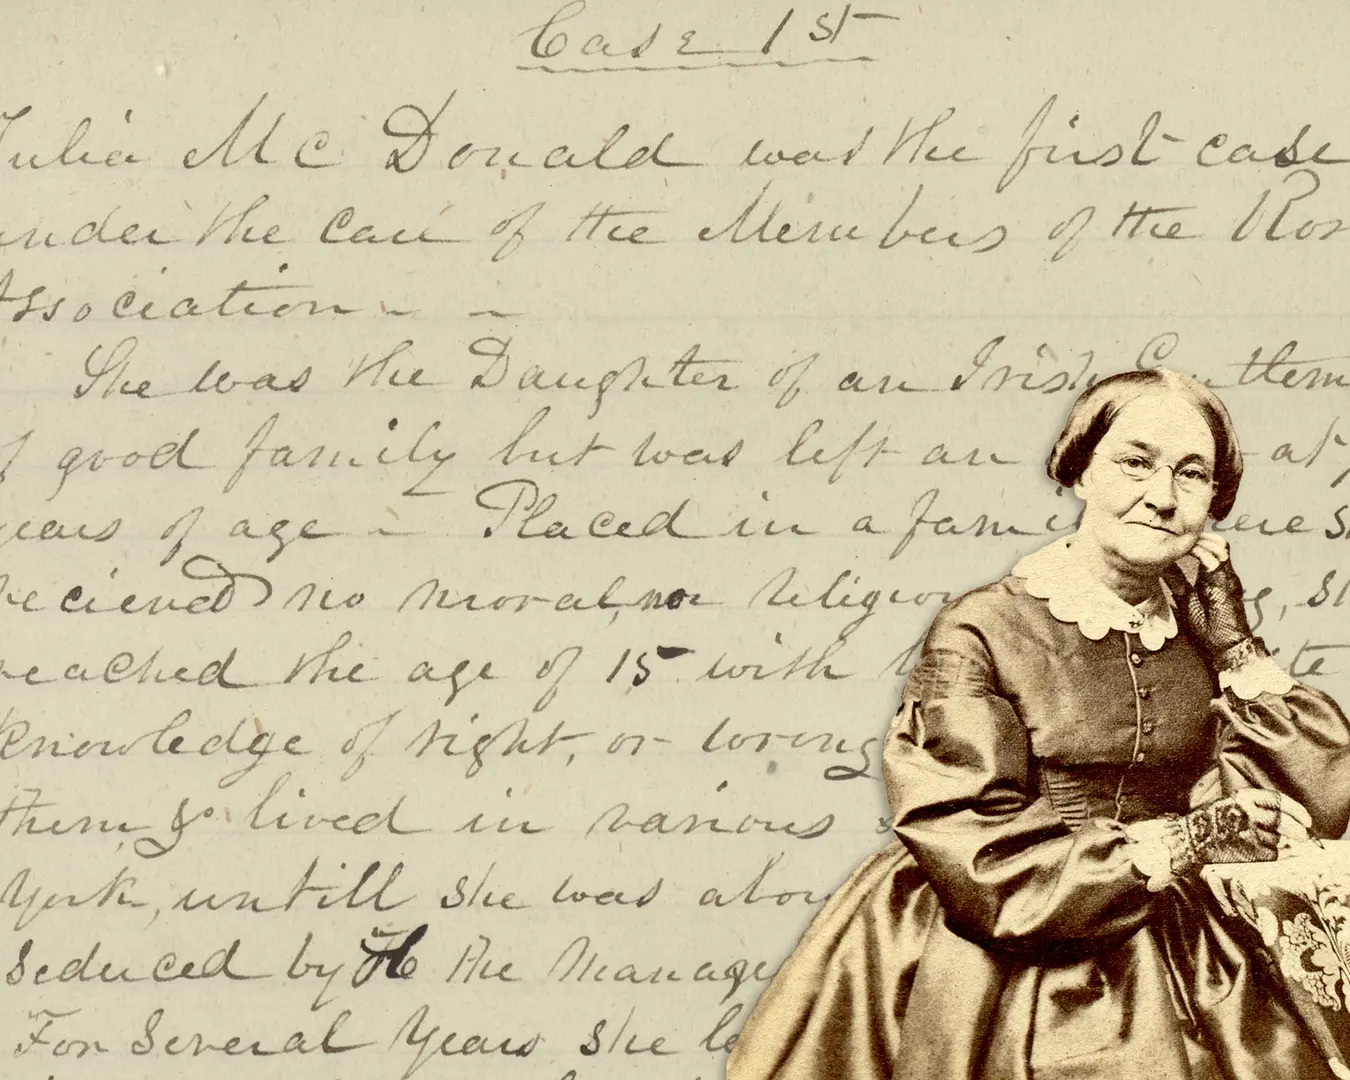 Case 1st
Julia Mc Donald was the first case
under the care of the Members of the Ros
Association - -
She was the Daughter of an Irish Gentlem
of good family but was left an at
years of age - Placed in a fami ere s
recieved no moral, nor religiou g, sh
reached the age of 15 with l ite
knowledge of right, or wrong
them & lived in various s
York, untill she was abou
seduced by the manage
For Several Years she le